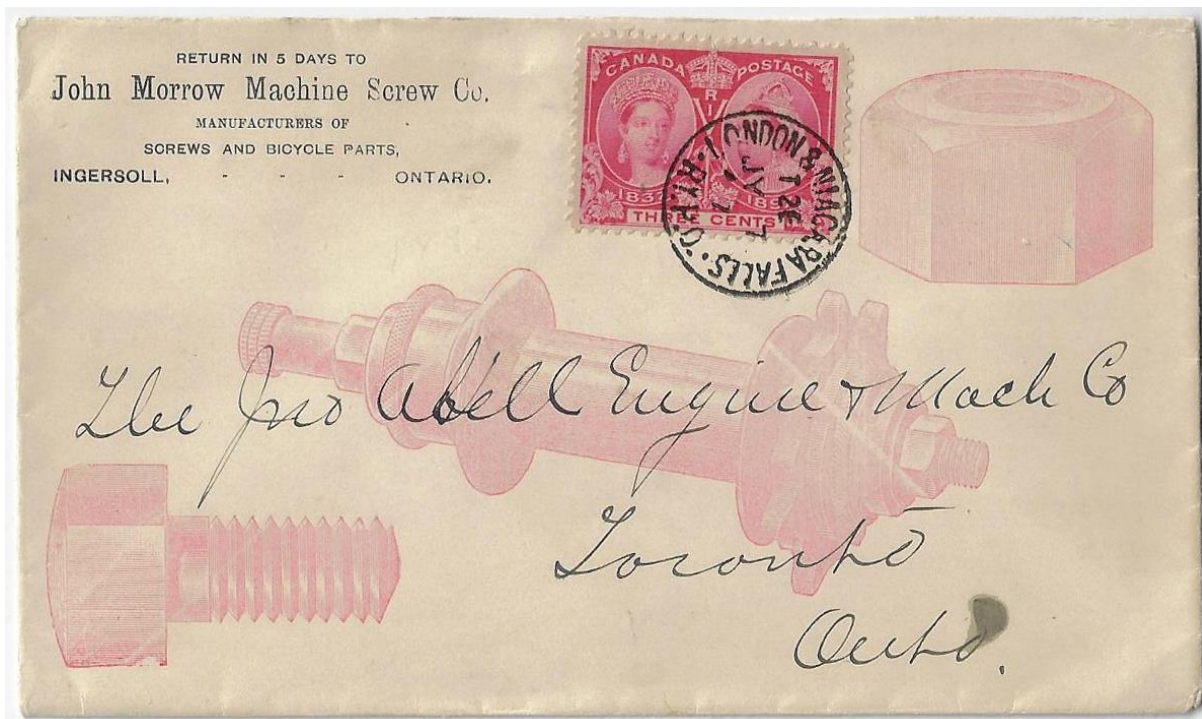 RETURN IN 5 DAYS TO
John Morrow Machine Screw Co.
MANUFACTURERS OF
SCREWS AND BICYCLE PARTS,
INGERSOLL, - - - ONTARIO.
CANADA POSTAGE
V R I
1837 189
THREE CENTS
LONDON & NIAGARA FALLS. G.R.Y.P.O.
The Jno Abell Engine & Mach Co
Toronto
Onto.